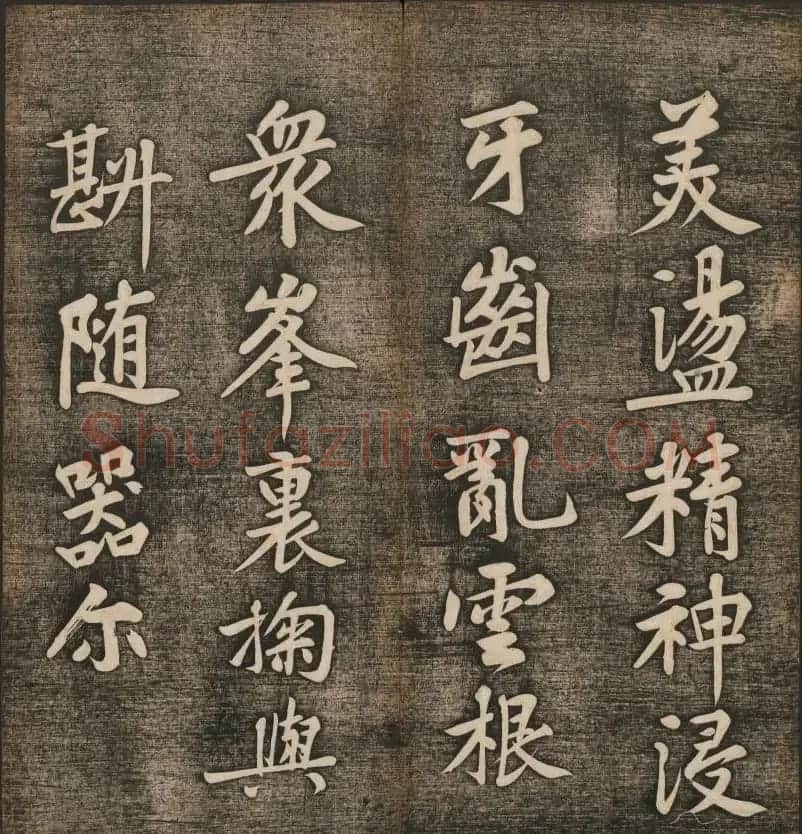 美盪精神浸
牙齒亂雲根
衆峯裏掬與
斟随器尔
Shufaziliao.COM